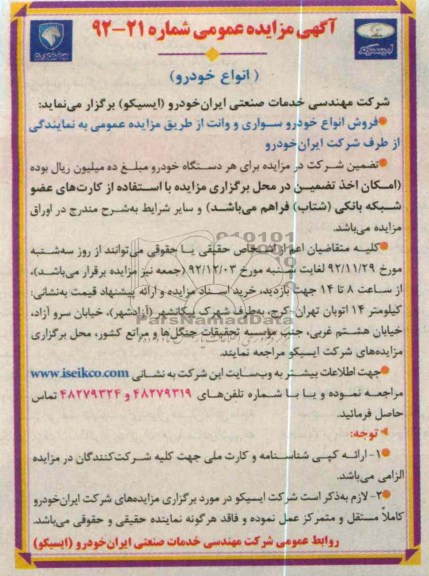 آگهی مزایده عمومی شماره ۲۱-۹۲
( انواع خودرو )
شرکت مهندسی خدمات صنعتی ایران‌خودرو (ایسیکو) برگزار می‌نماید:
●فروش انواع خودرو سواری و وانت از طریق مزایده عمومی به نمایندگی
از طرف شرکت ایران‌خودرو
●تضمین شرکت در مزایده برای هر دستگاه خودرو مبلغ ده میلیون ریال بوده
(امکان اخذ تضمین در محل برگزاری مزایده با استفاده از کارت‌های عضو
شبکه بانکی (شتاب) فراهم می‌باشد) و سایر شرایط به‌شرح مندرج در اوراق
مزایده می‌باشد.
●کلیه متقاضیان اعم از اشخاص حقیقی یا حقوقی می‌توانند از روز سه‌شنبه
مورخ ۹۲/۱۱/۲۹ لغایت شنبه مورخ ۹۲/۱۲/۰۳ (جمعه نیز مزایده برقرار می‌باشد)،
از ساعت ۸ تا ۱۴ جهت بازدید، خرید اسناد مزایده و ارائه پیشنهاد قیمت به‌نشانی:
کیلومتر ۱۴ اتوبان تهران-کرج، به‌طرف شهرک پیکانشهر (آزادشهر)، خیابان سرو آزاد،
خیابان هشتم غربی، جنب مؤسسه تحقیقات جنگل‌ها و مراتع کشور، محل برگزاری
مزایده‌های شرکت ایسیکو مراجعه نمایند.
●جهت اطلاعات بیشتر به وب‌سایت این شرکت به نشانی www.iseikco.com
مراجعه نموده و یا با شماره تلفن‌های ۴۸۲۷۹۳۱۹ و ۴۸۲۷۹۳۲۴ تماس
حاصل فرمائید.
توجه:
●۱- ارائه کپی شناسنامه و کارت ملی جهت کلیه شرکت‌کنندگان در مزایده
الزامی می‌باشد.
●۲- لازم به‌ذکر است شرکت ایسیکو در مورد برگزاری مزایده‌های شرکت ایران‌خودرو
کاملاً مستقل و متمرکز عمل نموده و فاقد هرگونه نماینده حقیقی و حقوقی می‌باشد.
روابط عمومی شرکت مهندسی خدمات صنعتی ایران‌خودرو (ایسیکو)
ParsNamadData